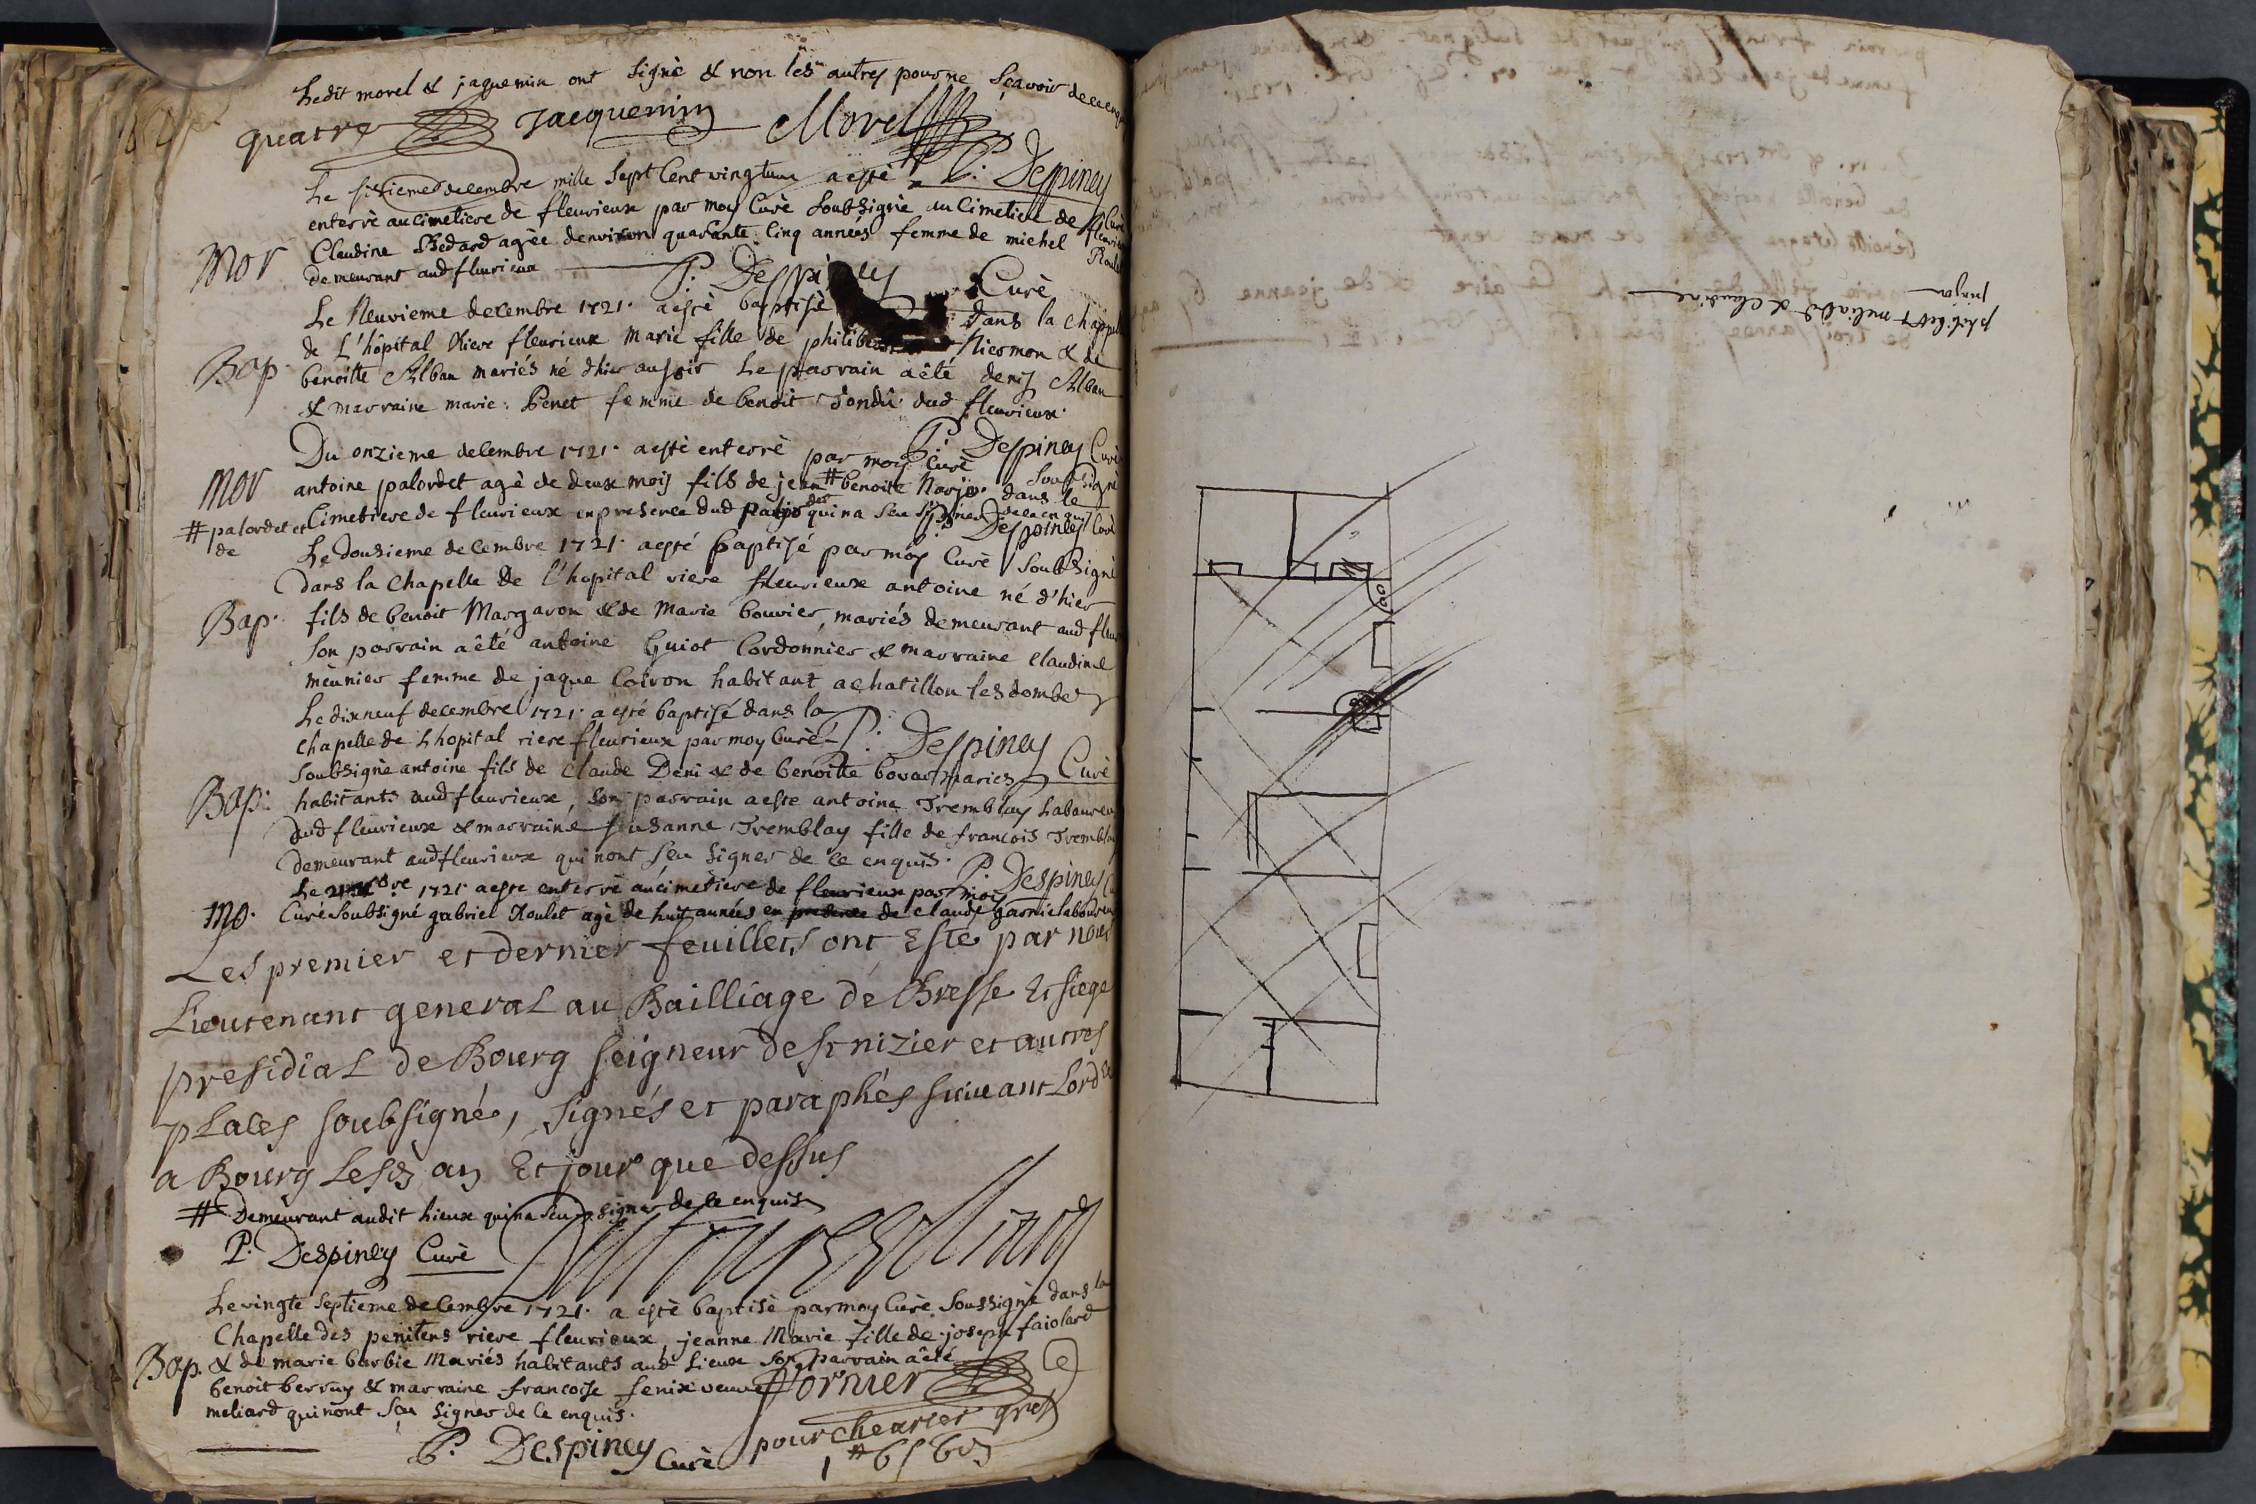 Ledit morel & jaquemin ont signè & non les autres pour ne sçavoir de ce enquis
quatre Jacquemin Morel
P. Despiney Curè
Le sixieme decembre mille sept cent vingtun a estè
enterrè au cimetiere de fleurieux par moy Curè soubsignè au cimetiere de fleurieux
Mor Claudine Bedard agèe denviron quarante cinq années femme de michel Roulet
demeurant aud fleurieux
P. Despiney Curè
Le Neuvieme decembre 1721. a estè baptisè dans la chappelle
de L'hôpital Riere fleurieux Marie fille de philibert Niermon & de
Bap benoitte Alban mariés né d'hier au soir Le parrain a êté denis Alban
& marraine marie Penet femme de benoit Tondu dud fleurieux.
P. Despiney Curè
Du onzieme decembre 1721. a esté enterrè par moy Curè soubsignè
Mor antoine palordet agè de deux mois fils de jean # benoite Narjo dans le
# palordet et de
Cimetiere de fleurieux en presence dud qui na sceu signer de ce enquis
P. Despiney Curè
Le douzieme decembre 1721. a esté baptisé par moy Curè soubsignè
dans la chapelle de l'hopital riere fleurieux antoine né d'hier
Bap. fils de benoit Margaron & de Marie bouvier, mariés demeurant aud fleurieux
son parrain a êté antoine Guiot Cordonnier & marraine claudine
meunier femme de jaque Coiron habitant a chatillon les dombes
P. Despiney Curè
Le dixneuf decembre 1721. a esté baptisé dans la
chapelle de Lhopital riere fleurieux par moy Curè
soubsignè antoine fils de Claude Deni & de benoitte bovar mariez
Bap: habitants aud fleurieux, son parrain a este antoine Tremblay Laboureur
dud fleurieux & marraine susanne Tremblay fille de francois Tremblay
demeurant aud fleurieux qui nont sceu signer de ce enquis.
P. Despiney
Le 1721. a este enterrè au cimetiere de fleurieux par moy
Mo. Curé soubsigné gabriel Roulet agè de huit années en presence de claude garnie laboureur
Les premier et dernier feuillets ont Esté par nous
Lieutenant general au Bailliage de Bresse Et siege
presidial de Bourg seigneur de st nizier et autres
places soubsigné, signés et paraphés suivant Lordce
a Bourg Lesd an Et jour que dessus
# Demeurant audit Lieux qui na sceu signer de ce enquis
P. Despiney Curè
Le vingte septieme decembre 1721. a estè baptisè par moy Curè soussignè dans la
Chapelle des penitens riere fleurieux, jeanne Marie fille de joseph faiolard
Bap. & de marie barbie Mariés habitants aud Lieux son parrain a êté
benoit berruy & marraine francoise fenix veuve
meliard qui nont sceu signer de ce enquis.
P. Despiney Curè
Fornier
pour
philibert meliard & claudine